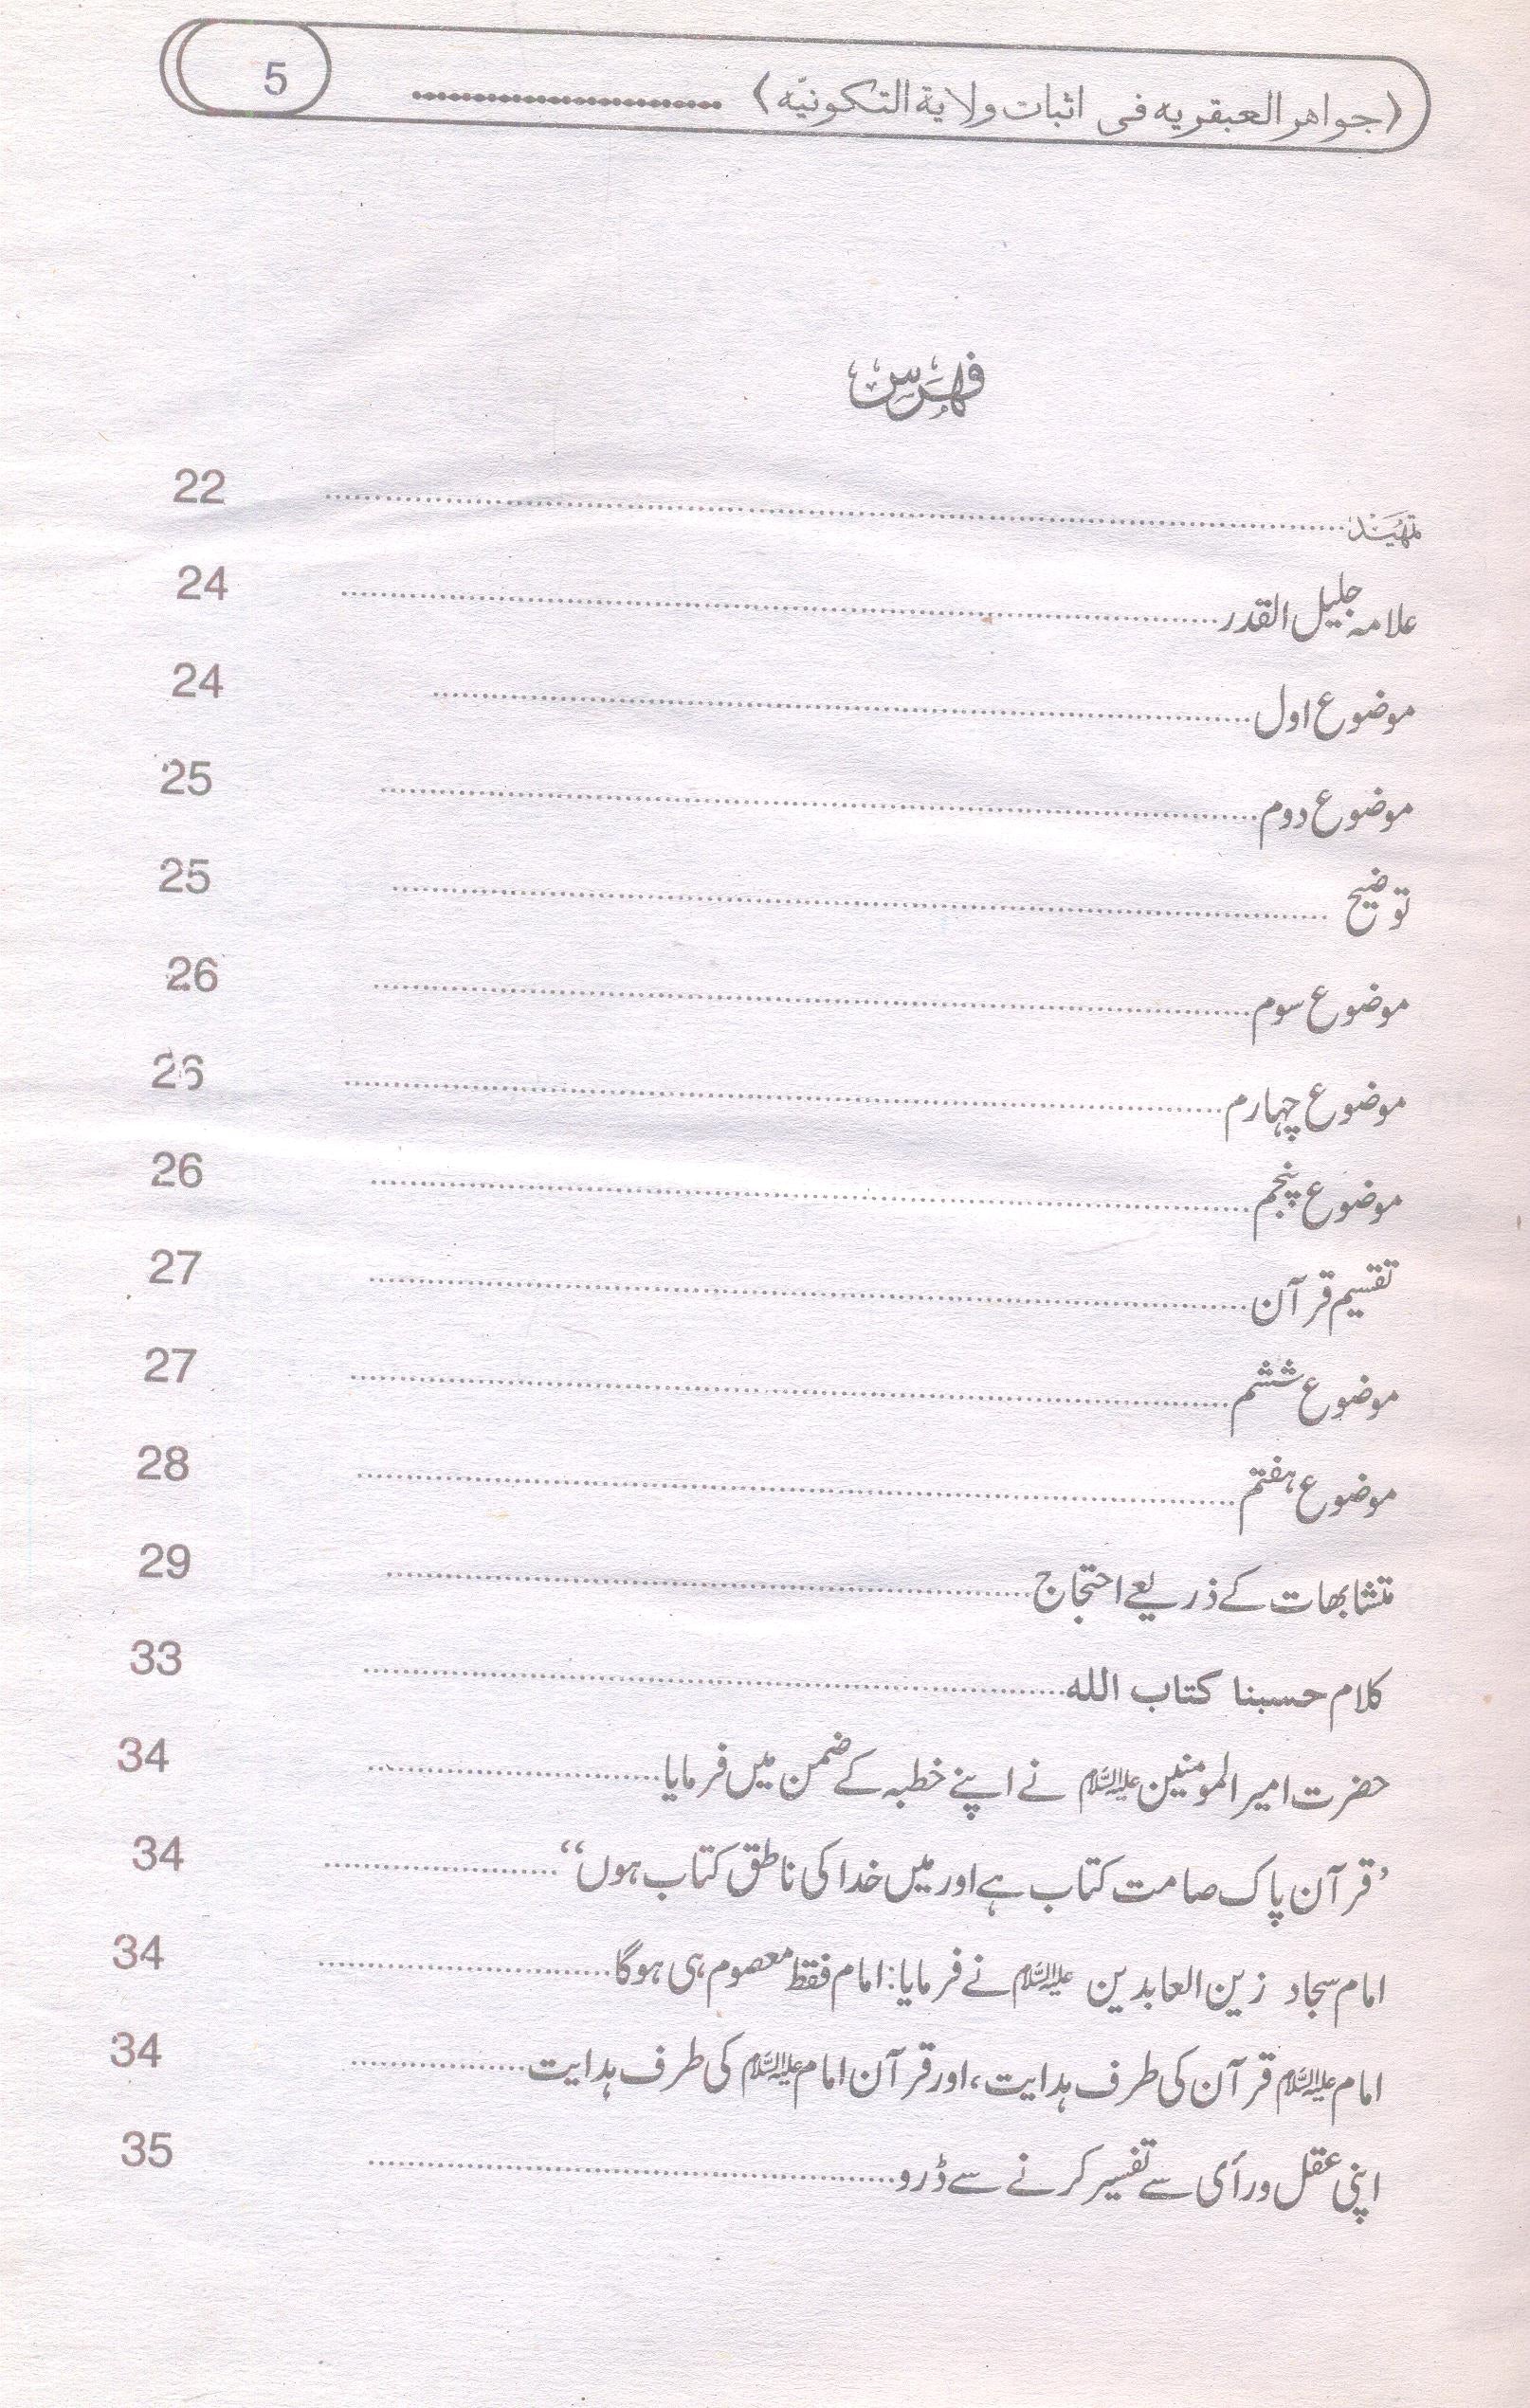 ﴿جواهر العبقریه فی اثبات ولایة التکونیّه﴾ ........................ 5
فہرس
تمہید ........................ 22
علامہ جلیل القدر ........................ 24
موضوع اول ........................ 24
موضوع دوم ........................ 25
توضیح ........................ 25
موضوع سوم ........................ 26
موضوع چہارم ........................ 26
موضوع پنجم ........................ 26
تقسیم قرآن ........................ 27
موضوع ششم ........................ 27
موضوع ہفتم ........................ 28
متشابھات کے ذریعے احتجاج ........................ 29
کلام حسبنا کتاب الله ........................ 33
حضرت امیر المومنین علیہ السلام نے اپنے خطبہ کے ضمن میں فرمایا ........................ 34
’قرآن پاک صامت کتاب ہے اور میں خدا کی ناطق کتاب ہوں‘‘ ........................ 34
امام سجاد زین العابدین علیہ السلام نے فرمایا: امام فقط معصوم ہی ہوگا ........................ 34
امام علیہ السلام قرآن کی طرف ہدایت، اور قرآن امام علیہ السلام کی طرف ہدایت ........................ 34
اپنی عقل و رأی سے تفسیر کرنے سے ڈرو ........................ 35